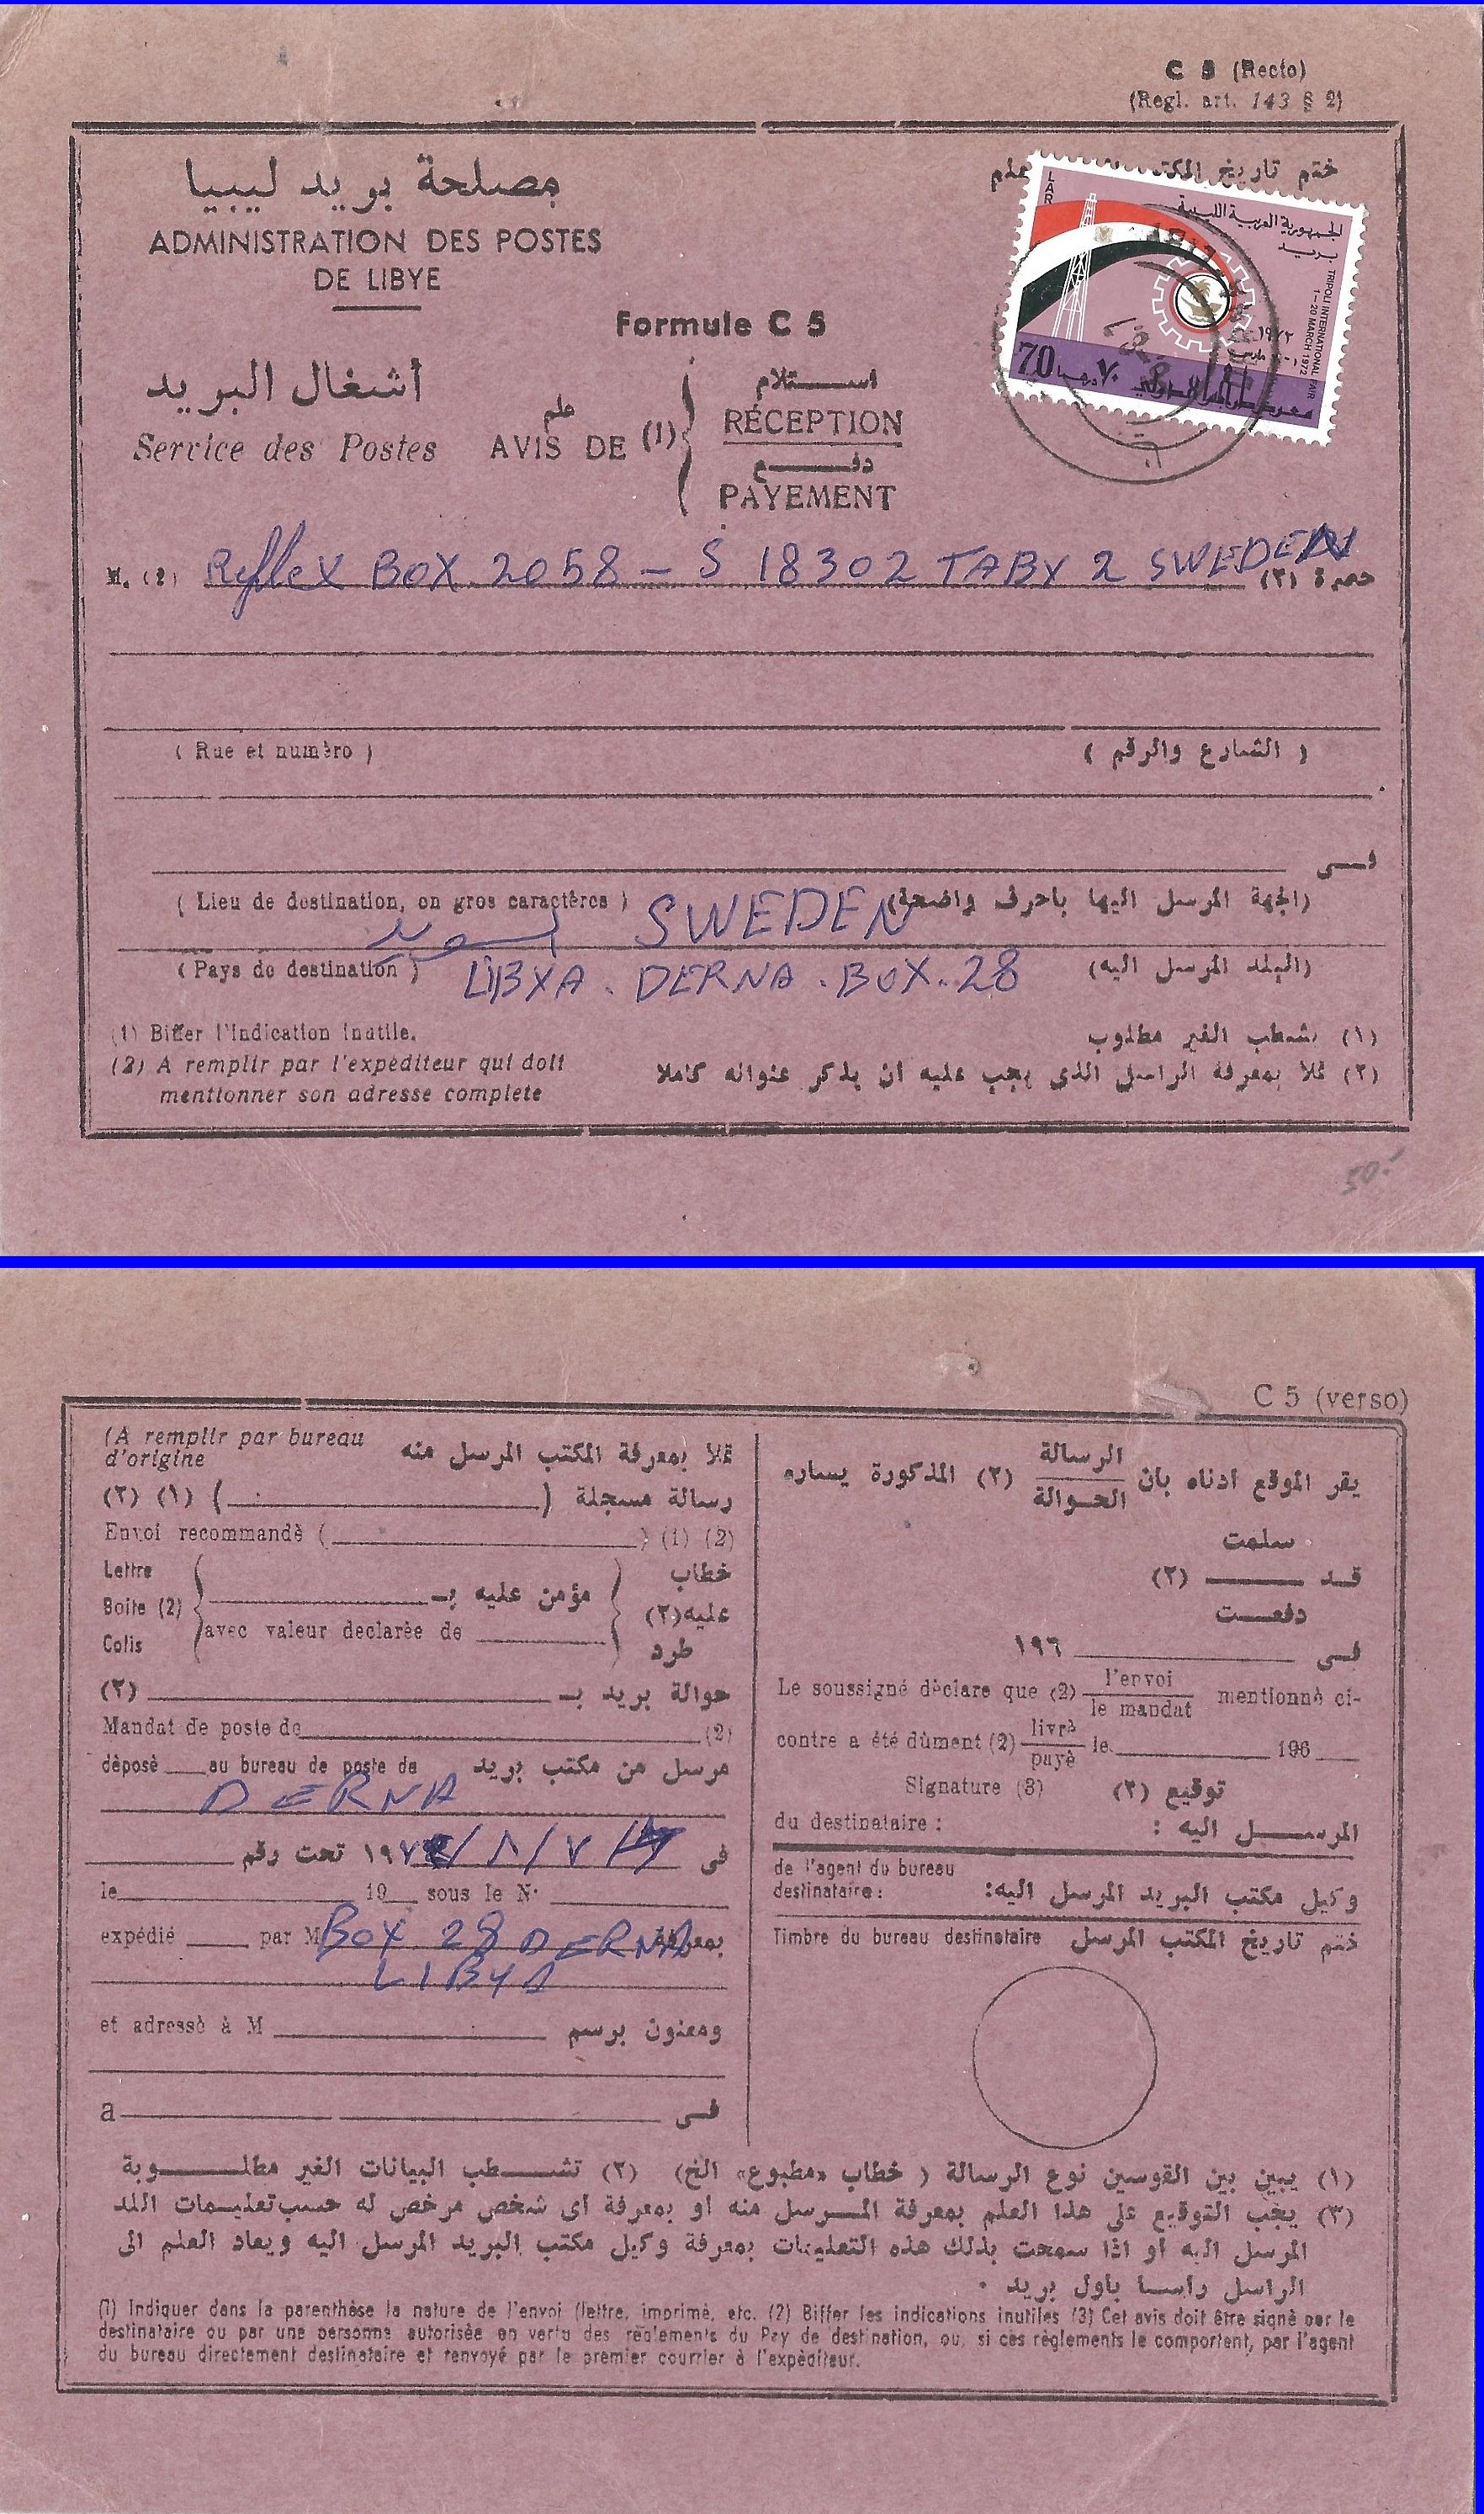 C 5 (Recto)
(Regl. art. 143 § 2)
مصلحة بريد ليبيا
ختم تاريخ المكتب علم
ADMINISTRATION DES POSTES
DE LIBYE
Formule C 5
أشغال البريد
Service des Postes
علم
AVIS DE (1)
استلام
RÉCEPTION
دفع
PAYEMENT
LAR
الجمهورية العربية الليبية
بريد
TRIPOLI INTERNATIONAL FAIR
1-20 MARCH 1972
١٩٧٢
معرض طرابلس الدولي
70 ٧٠ درهما
M. (2) Reflex BOX 2058 - S 18302 TABY 2 SWEDEN حضرة (٢)
( Rue et numèro ) ( الشارع والرقم )
فى
( Lieu de destination, on gros caractères ) (الجهة المرسل اليها باحرف واضحة)
SWEDEN
( Pays de destination ) (البلد المرسل اليه)
LIBYA . DERNA . BOX. 28
(1) Biffer l'indication inutile. (١) بشطب الغير مطلوب
(2) A remplir par l'expéditeur qui doit
mentionner son adresse complete
(٢) تملأ بمعرفة الراسل الذى يجب عليه ان يذكر عنوانه كاملا
50.-
C 5 (verso)
(A remplir par bureau
d'origine
تملأ بمعرفة المكتب المرسل منه
رسالة مسجلة ( ) (١) (٢)
Envoi recommandè ( ) (1) (2)
Lettre
Boite (2)
Colis
مؤمن عليه بـ
avec valeur declarée de
خطاب
عليه(٢)
طرد
حوالة بريد بـ (٢)
Mandat de poste de (2)
dèposè au bureau de poste de مرسل من مكتب بريد
DERNA
فى ٧/٨/١٩٧ تحت رقم
le 19 sous le N·
expédié par M BOX 28 DERNA بمعرفة
LIBYA
et adressè à M ومعنون برسم
a فى
يقر الموقع ادناه بان الرسالة / الحوالة (٢) المذكورة يساره
سلمت
قد (٢)
دفعت
فى ١٩٦
Le soussigné dèclare que (2) l'envoi / le mandat mentionnè ci-
contre a été dûment (2) livrè / payè le 196
Signature (3) توقيع (٢)
du destinataire : المرسل اليه :
de l'agent du bureau
destinataire : وكيل مكتب البريد المرسل اليه:
Timbre du bureau destinataire ختم تاريخ المكتب المرسل
(١) يبين بين القوسين نوع الرسالة ( خطاب «مطبوع» الخ) (٢) تشطب البيانات الغير مطلوبة
(٣) يجب التوقيع على هذا العلم بمعرفة المرسل منه او بمعرفة أى شخص مرخص له حسب تعليمات اللد
المرسل اليه او اذا سمحت بذلك هذه التعليمات بمعرفة وكيل مكتب البريد المرسل اليه ويعاد العلم الى
الراسل رأسا باول بريد .
(1) Indiquer dans la parenthèse la nature de l'envoi (lettre, imprimè, etc. (2) Biffer les indications inutiles (3) Cet avis doit être signè par le
destinataire ou par une personne autorisée en vertu des règlements du Pay de destination, ou, si ces règlements le comportent, par l'agent
du bureau directement destinataire et renvoyé par le premier courrier à l'expèditeur.